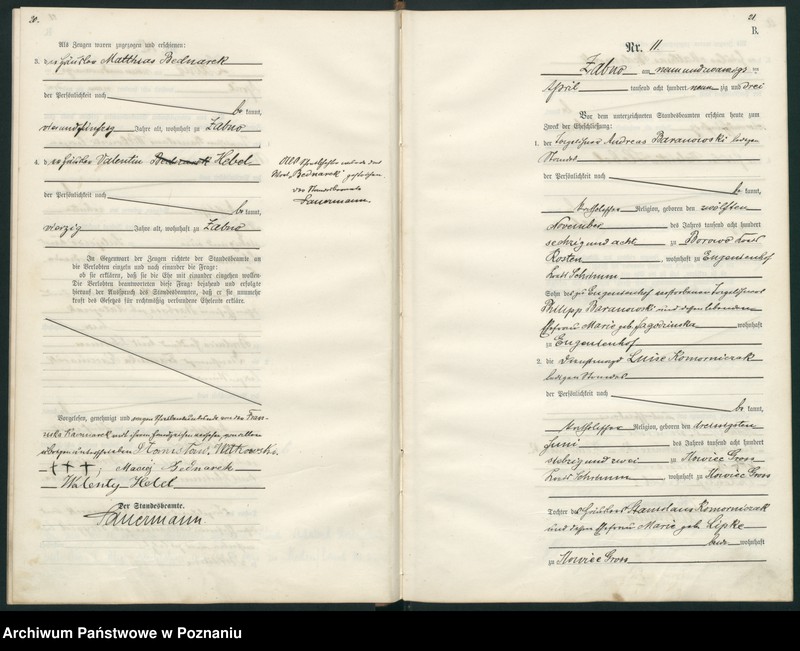 20.
Als Zeugen waren zugezogen und erschienen:
3. der Häusler Matthias Bednarek
der Persönlichkeit nach
be kannt,
vierundfünfzig Jahre alt, wohnhaft zu Zabno
4. der Häusler Valentin Bednarek Held
der Persönlichkeit nach
be kannt,
vierzig Jahre alt, wohnhaft zu Zabno
In Gegenwart der Zeugen richtete der Standesbeamte an
die Verlobten einzeln und nach einander die Frage:
ob sie erklären, daß sie die Ehe mit einander eingehen wollen.
Die Verlobten beantworteten diese Frage bejahend und erfolgte
hierauf der Ausspruch des Standesbeamten, daß er sie nunmehr
kraft des Gesetzes für rechtmäßig verbundene Eheleute erkläre.
Vorgelesen, genehmigt und wegen von der Fran-
ziska mit ihrem Handzeichen versehen, von allen
übrigen unterschrieben Witkowski
+++, Maciej Bednarek
Walenty Held
Der Standesbeamte.
Sauermann
Wort „Bednarek" gestrichen
Der Standesbeamte
Sauermann.
21
B.
Nr. 11.
Zabno am neunundzwanzig ten
April tausend acht hundert neun zig und drei
Vor dem unterzeichneten Standesbeamten erschien heute zum
Zweck der Eheschließung:
1. der Vorgelehnert Andreas Baranowski ledigen
Standes
der Persönlichkeit nach
be kannt,
katholischer Religion, geboren den zwölften
November des Jahres tausend acht hundert
sechzig und acht zu Borowo Kreis
Kosten, wohnhaft zu Eugenienhof
Kreis Schrimm
Sohn des zu Eugenienhof verstorbenen
Philipp Baranowski und dessen lebenden
Ehefrau Marie geb. Jagodzinska wohnhaft
zu Eugenienhof
2. die Dienstmagd Luise Komorniczak
ledigen Standes
der Persönlichkeit nach
be kannt,
katholischer Religion, geboren den dreizehnten
Juni des Jahres tausend acht hundert
siebzig und zwei zu Nowiec Gross
Kreis Schrimm, wohnhaft zu Nowiec Gross
Tochter des Stanislaus Komorniczak
und dessen Ehefrau Marie geb. Lipke
beide wohnhaft
zu Nowiec Gross
Archiwum Państwowe w Poznaniu